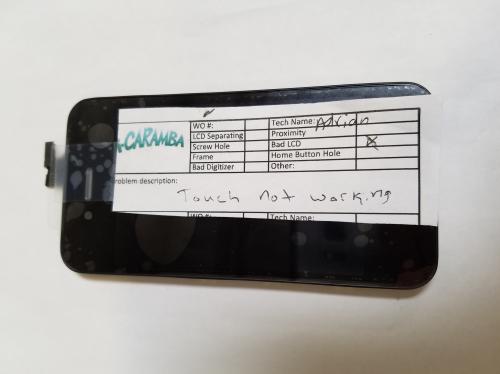 CARAMBA
WO #: Tech Name: Adrian
LCD Separating Proximity
Screw Hole Bad LCD X
Frame Home Button Hole
Bad Digitizer Other:
roblem description:
Touch not working
WO #: Tech Name: